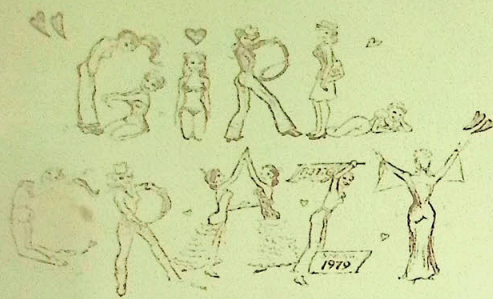 GIRL
CRAZY
1979